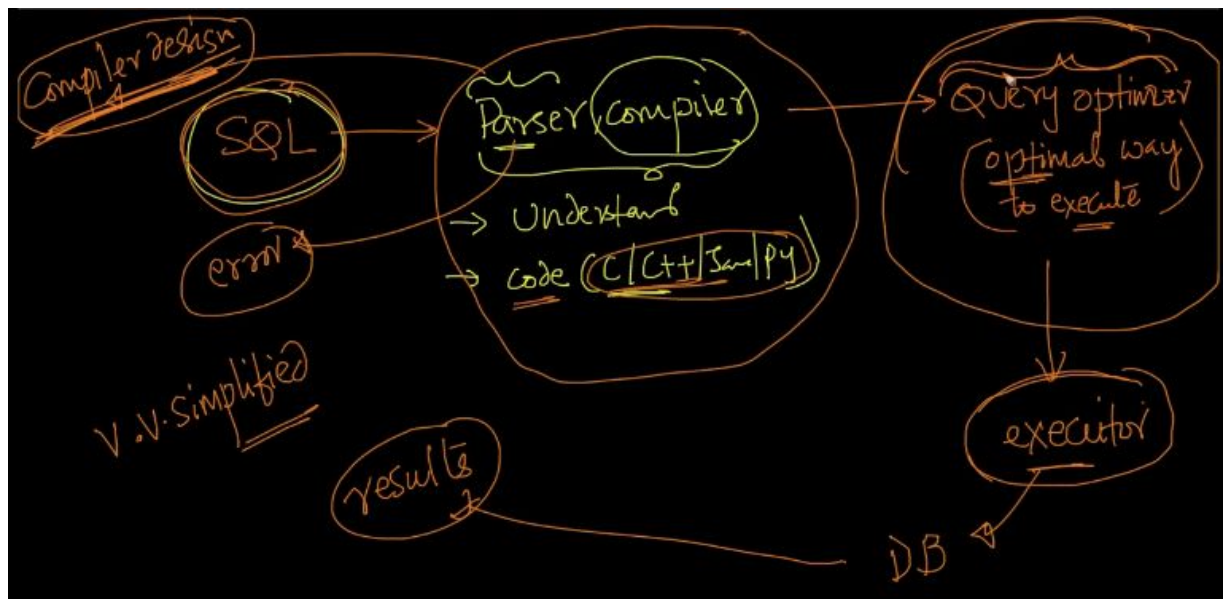 Compiler design
SQL
error
V.V. simplified
Parser, compiler
→ Understand
→ code (C/C++/Java/Py)
Query optimizer
(optimal way
to execute)
executor
DB
results